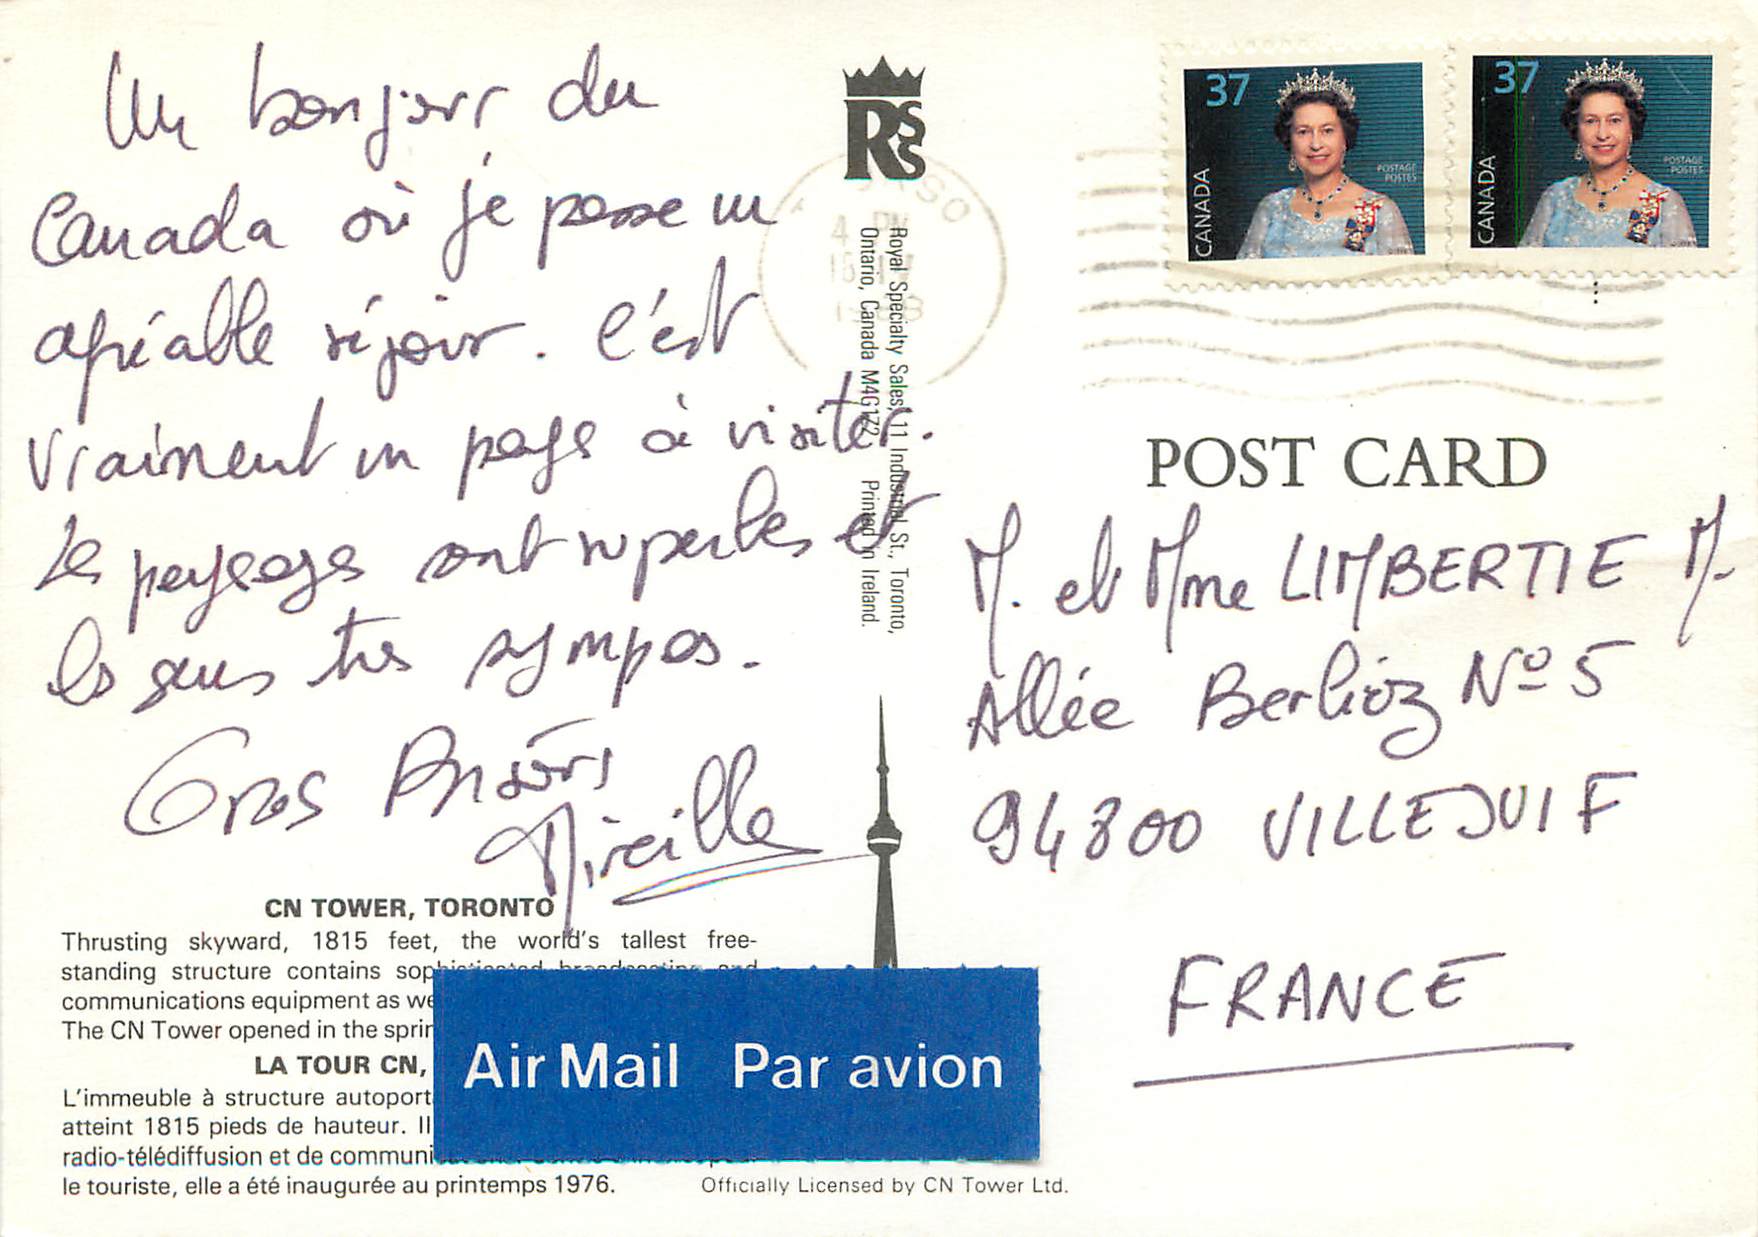 Un bonjour du
Canada où je passe un
agréable séjour. C'est
vraiment un pays à visiter.
Les paysages sont superbes et
les gens très sympas.
Gros Baisers
Mireille
CN TOWER, TORONTO
Thrusting skyward, 1815 feet, the world's tallest free-
standing structure contains sophisticated broadcasting and
communications equipment as we
The CN Tower opened in the sprin
LA TOUR CN,
L'immeuble à structure autoport
atteint 1815 pieds de hauteur. Il
radio-télédiffusion et de communi
le touriste, elle a été inaugurée au printemps 1976.
Air Mail Par avion
Officially Licensed by CN Tower Ltd.
RSSS
Royal Specialty Sales, 11 Industrial St., Toronto,
Ontario, Canada M4G1Z2 Printed in Ireland.
4 PM
CANADA 37 POSTAGE POSTES
CANADA 37 POSTAGE POSTES
POST CARD
M. et Mme LIMBERTIE M.
Allée Berlioz Nº 5
94800 VILLEJUIF
FRANCE